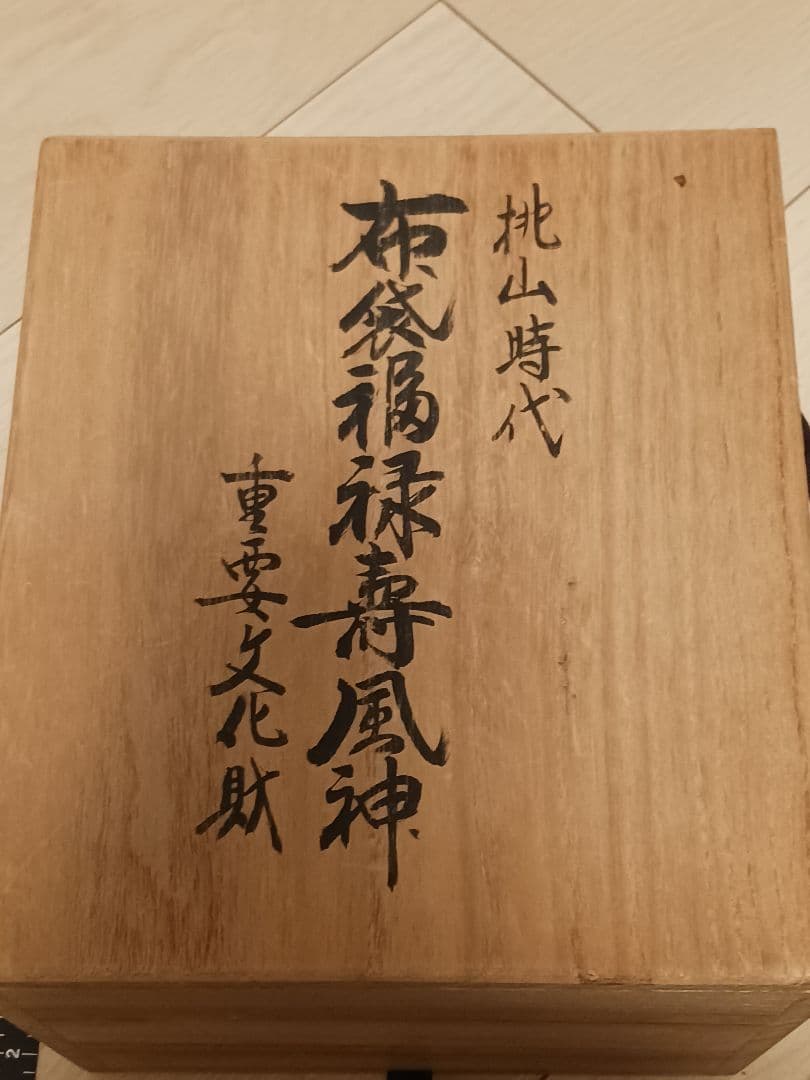 桃山時代
布袋福禄寿風神
重要文化財
2